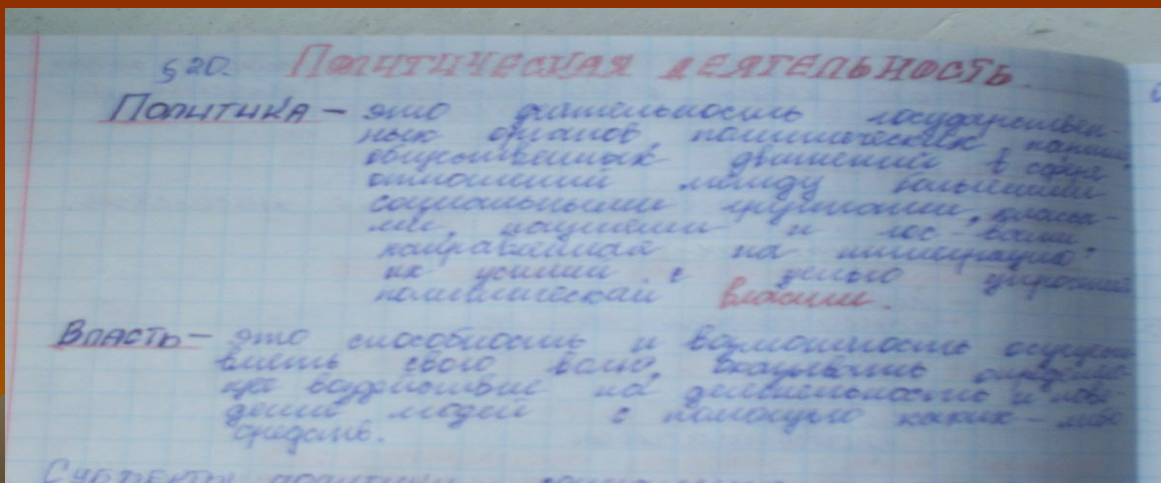 § 20. ПОЛИТИЧЕСКАЯ ДЕЯТЕЛЬНОСТЬ.
ПОЛИТИКА – это деятельность государствен-
ных органов, политических партий,
общественных движений в сфере
отношений между большими
социальными группами, класса-
ми, нациями и гос-вами,
направленная на интеграцию
их усилий с целью упрочения
политической власти.
ВЛАСТЬ – это способность и возможность осущест
влять свою волю, оказывать определён
ное воздействие на деятельность и пове-
дение людей с помощью каких-либо
средств.
СУБЪЕКТЫ политики